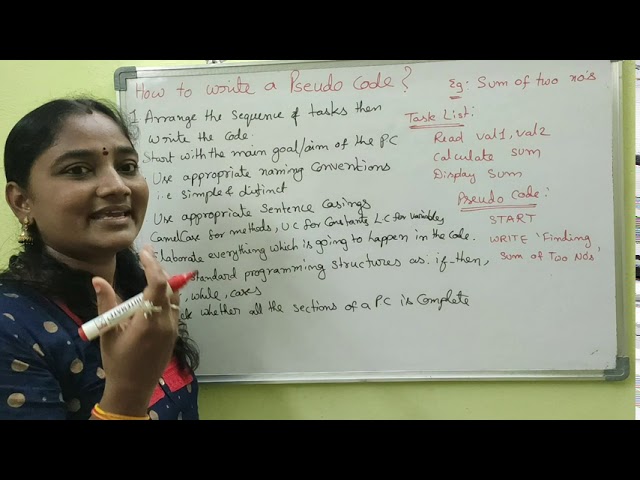 How to write a Pseudo Code?
1 Arrange the sequence of tasks then
write the code.
Start with the main goal/aim of the PC
Use appropriate naming conventions
i.e simple & distinct
Use appropriate sentence casings
CamelCase for methods, UC for Constants LC for variables
Elaborate everything which is going to happen in the code.
standard programming structures as: if-then,
, while, cases
whether all the sections of a PC is complete
Eg: Sum of two no's
Task List:
Read val1, val2
Calculate sum
Display sum
Pseudo Code:
START
WRITE 'Finding
Sum of Two No's'